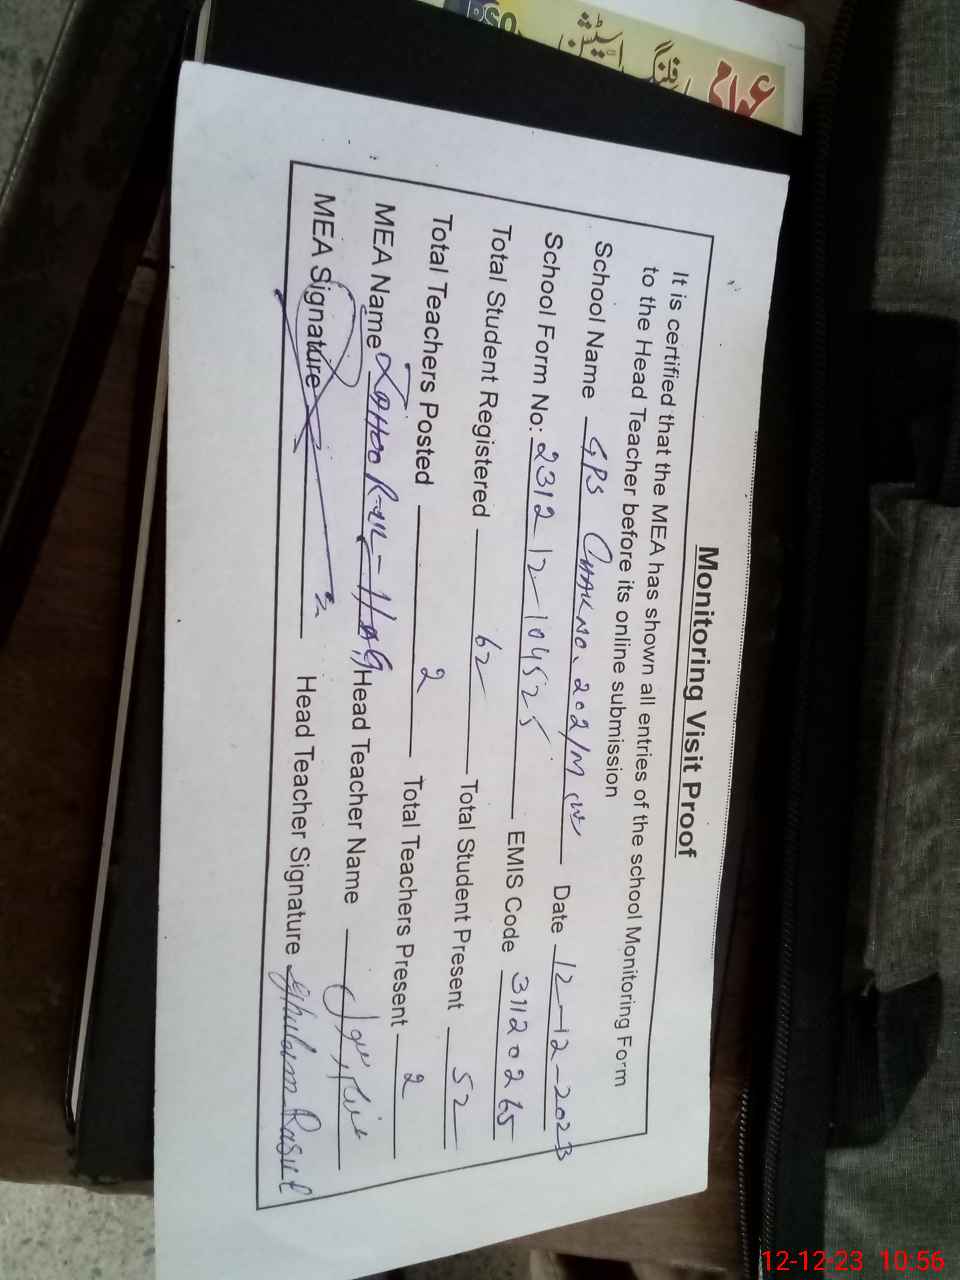 عوامی
Monitoring Visit Proof
It is certified that the MEA has shown all entries of the school Monitoring Form
to the Head Teacher before its online submission
School Name GPS CHAK NO. 202/M Date 12-12-2023
School Form No: 231212-104525 EMIS Code 31120265
Total Student Registered 62 Total Student Present 52
Total Teachers Posted 2 Total Teachers Present 2
MEA Name Head Teacher Name
MEA Signature Head Teacher Signature Ghulam Rasul
12-12-23 10:56